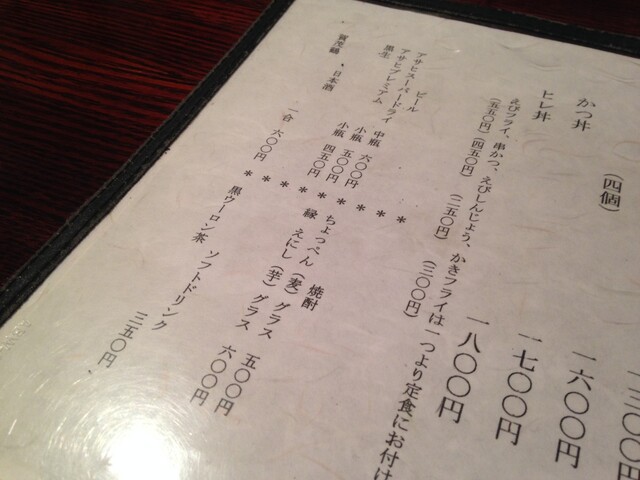 （四個）　一六〇〇円
かつ丼　一七〇〇円
ヒレ丼　一八〇〇円
えびフライ、串かつ、えびしんじょう、かきフライは一つより定食にお付け
（五五〇円）（四五〇円）（二五〇円）（三〇〇円）
ビール
アサヒスーパードライ　中瓶　六〇〇円
アサヒプレミアム　小瓶　五〇〇円
黒生　小瓶　四五〇円
日本酒
賀茂鶴　一合　六〇〇円
＊＊＊＊＊＊＊＊＊
焼酎
ちょっぺん（麦）グラス　五〇〇円
縁　えにし（芋）グラス　六〇〇円
ソフトドリンク
黒ウーロン茶　三五〇円